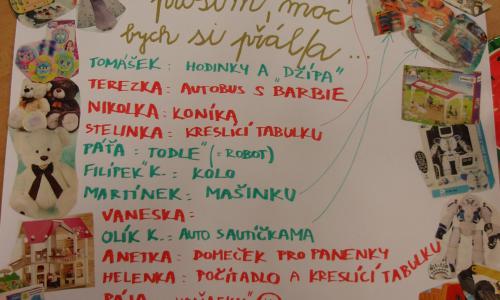 prosím, moc
bych si přál/a ...
TOMÁŠEK: HODINKY A "DŽÍPA"
TEREZKA: AUTOBUS S "BARBIE
NIKOLKA: KONÍKA
STELINKA: KRESLÍCÍ TABULKU
PÁŤA: "TODLE" (= ROBOT)
FILÍPEK K.: KOLO
MARTÍNEK: MAŠINKU
VANESKA:
OLÍK K.: AUTO S AUTÍČKAMA
ANETKA: DOMEČEK PRO PANENKY
HELENKA: POČÍTADLO A KRESLÍCÍ TABULKU
PÁJA: